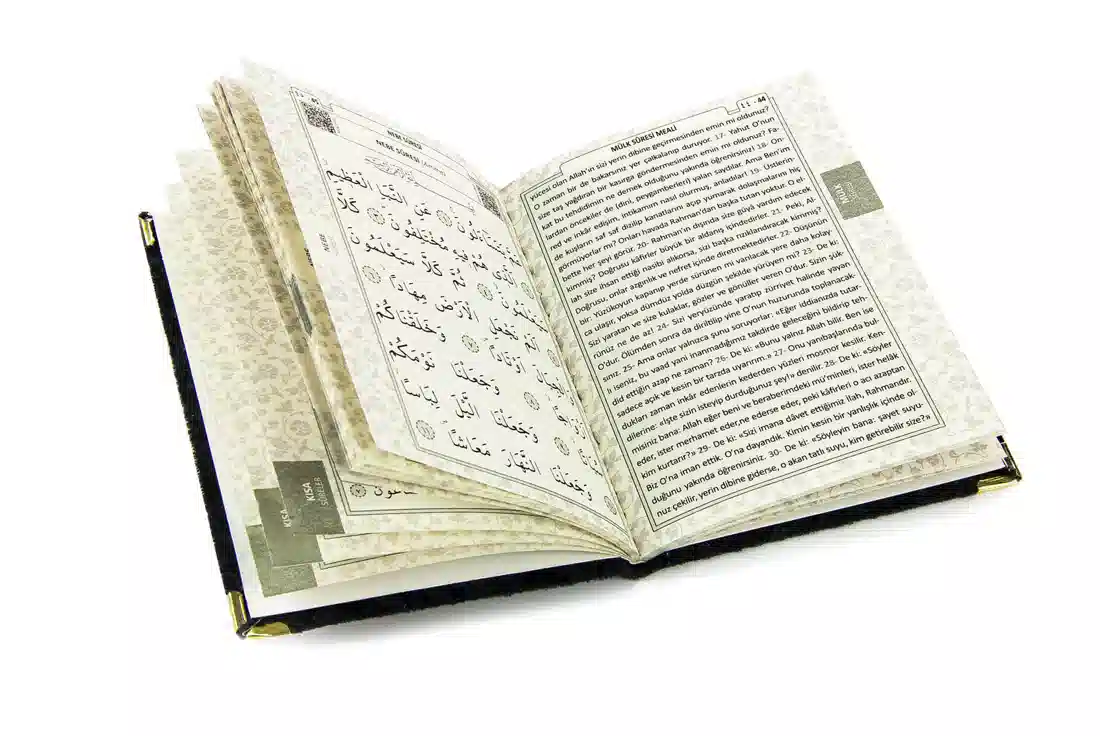 45
NEBE SÛRESİ
NEBE SÛRESİ
عَنِ النَّبَإِ الْعَظِيمِ
الَّذِي هُمْ فِيهِ مُخْتَلِفُونَ كَلَّا
ثُمَّ كَلَّا سَيَعْلَمُونَ
نَجْعَلِ الْأَرْضَ مِهَادًا
أَوْتَادًا وَخَلَقْنَاكُمْ
وَجَعَلْنَا نَوْمَكُمْ
وَجَعَلْنَا الَّيْلَ لِبَاسًا
وَجَعَلْنَا النَّهَارَ مَعَاشًا
KISA
KISA
SÛRELER
٤٤ - 44
MÜLK SÛRESİ MEALİ
yücesi olan Allah'ın sizi yerin dibine geçirmesinden emin mi oldunuz?
O zaman bir de bakarsınız yer çalkalanıp duruyor. 17- Yahut O'nun
size taş yağdıran bir kasırga göndermesinden emin mi oldunuz? Fa-
kat bu tehdidimin ne demek olduğunu yakında öğrenirsiniz! 18- On-
lardan öncekiler de (dini, peygamberleri) yalan saydılar. Ama Ben'im
red ve inkâr edişim, intikamım nasıl olurmuş, anladılar! 19- Üstlerin-
de kuşların saf saf dizilip kanatlarını açıp yumarak dolaşmalarını hiç
görmüyorlar mı? Onları havada Rahman'dan başka tutan yoktur. O el-
bette her şeyi görür. 20- Rahman'ın dışında size gûyâ yardım edecek
kimmiş? Doğrusu kâfirler büyük bir aldanış içindedirler. 21- Peki, Al-
lah size ihsan ettiği nasibi alıkorsa, sizi başka rızıklandıracak kimmiş?
Doğrusu, onlar azgınlık ve nefret içinde diretmektedirler. 22- Düşünün
bir: Yüzükoyun kapanıp yerde sürünen mi varılacak yere daha kolay-
ca ulaşır, yoksa dümdüz yolda düzgün şekilde yürüyen mi? 23- De ki:
Sizi yaratan ve size kulaklar, gözler ve gönüller veren O'dur. Sizin şük-
rünüz ne de az! 24- Sizi yeryüzünde yaratıp zürriyet halinde yayan
O'dur. Ölümden sonra da diriltilip yine O'nun huzurunda toplanacak-
sınız. 25- Ama onlar yalnızca şunu soruyorlar: «Eğer iddianızda tutar-
lı iseniz, bu vaad yani inanmadığımız takdirde geleceğini bildirip teh-
did ettiğin azap ne zaman? 26- De ki: «Bunu yalnız Allah bilir. Ben ise
sadece açık ve kesin bir tarzda uyarırım.» 27- Onu yanıbaşlarında bul-
dukları zaman inkâr edenlerin kederden yüzleri mosmor kesilir. Ken-
dilerine: «İşte sizin isteyip durduğunuz şey!» denilir. 28- De ki: «Söyler
misiniz bana: Allah eğer beni ve beraberimdeki mü'minleri, ister helâk
eder, ister merhamet eder,ne ederse eder, peki kâfirleri o acı azaptan
kim kurtarır?» 29- De ki: «Sizi imana dâvet ettiğimiz ilah, Rahmandır.
Biz O'na iman ettik. O'na dayandık. Kimin kesin bir yanlışlık içinde ol-
duğunu yakında öğrenirsiniz. 30- De ki: «Söyleyin bana: şayet suyu-
nuz çekilir, yerin dibine giderse, o akan tatlı suyu, kim getirebilir size?»
MÜLK